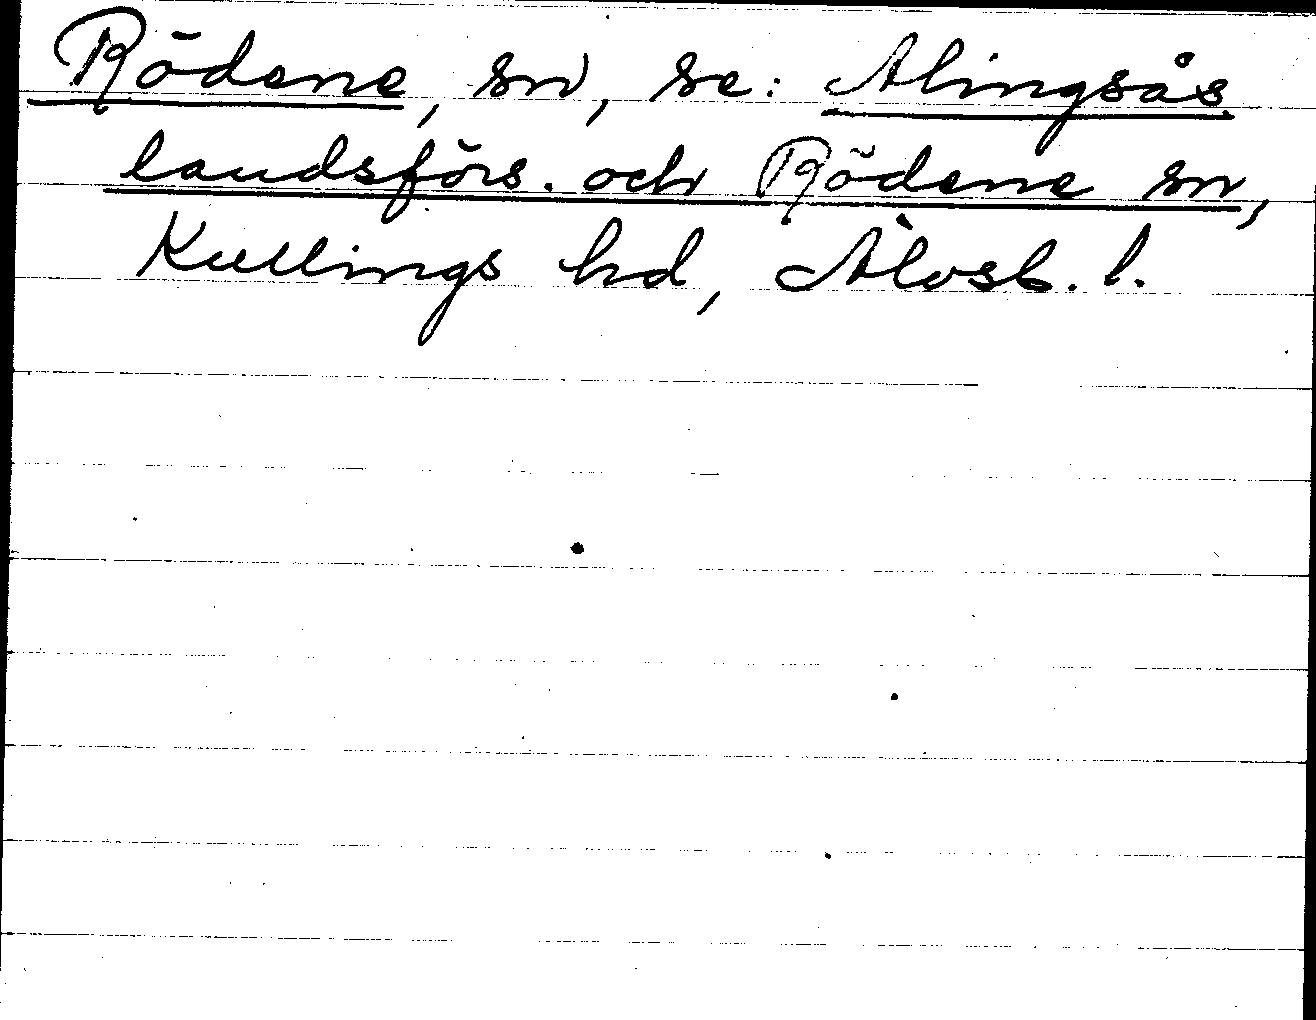 Rödene, sn, se: Alingsås
landsförs. och Rödene sn,
Kullings hd, Älvsb. l.